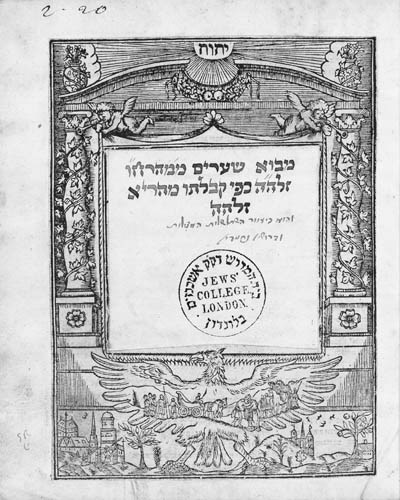 2 - 20
יהוה
מבוא שערים ממהרח״ו
זלה״ה כפי קבלתו מהרי״א
זלהה
והוא
בית המדרש דק״ק אשכנזים
JEWS'
COLLEGE,
LONDON.
בלונדון